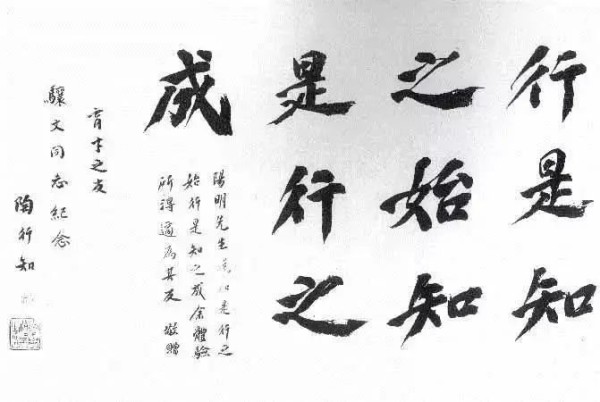 行是知
之始知
是行之
成
陽明先生知是行之
始行是知之成余體驗
所得適為其反 敬贈
育才之友
驤文同志紀念
陶行知